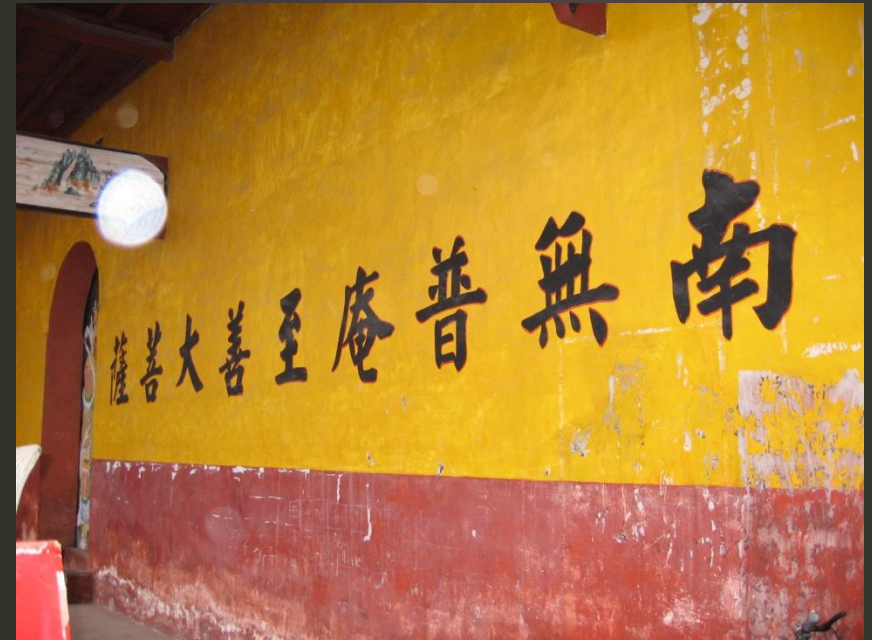 南無普庵至善大菩薩